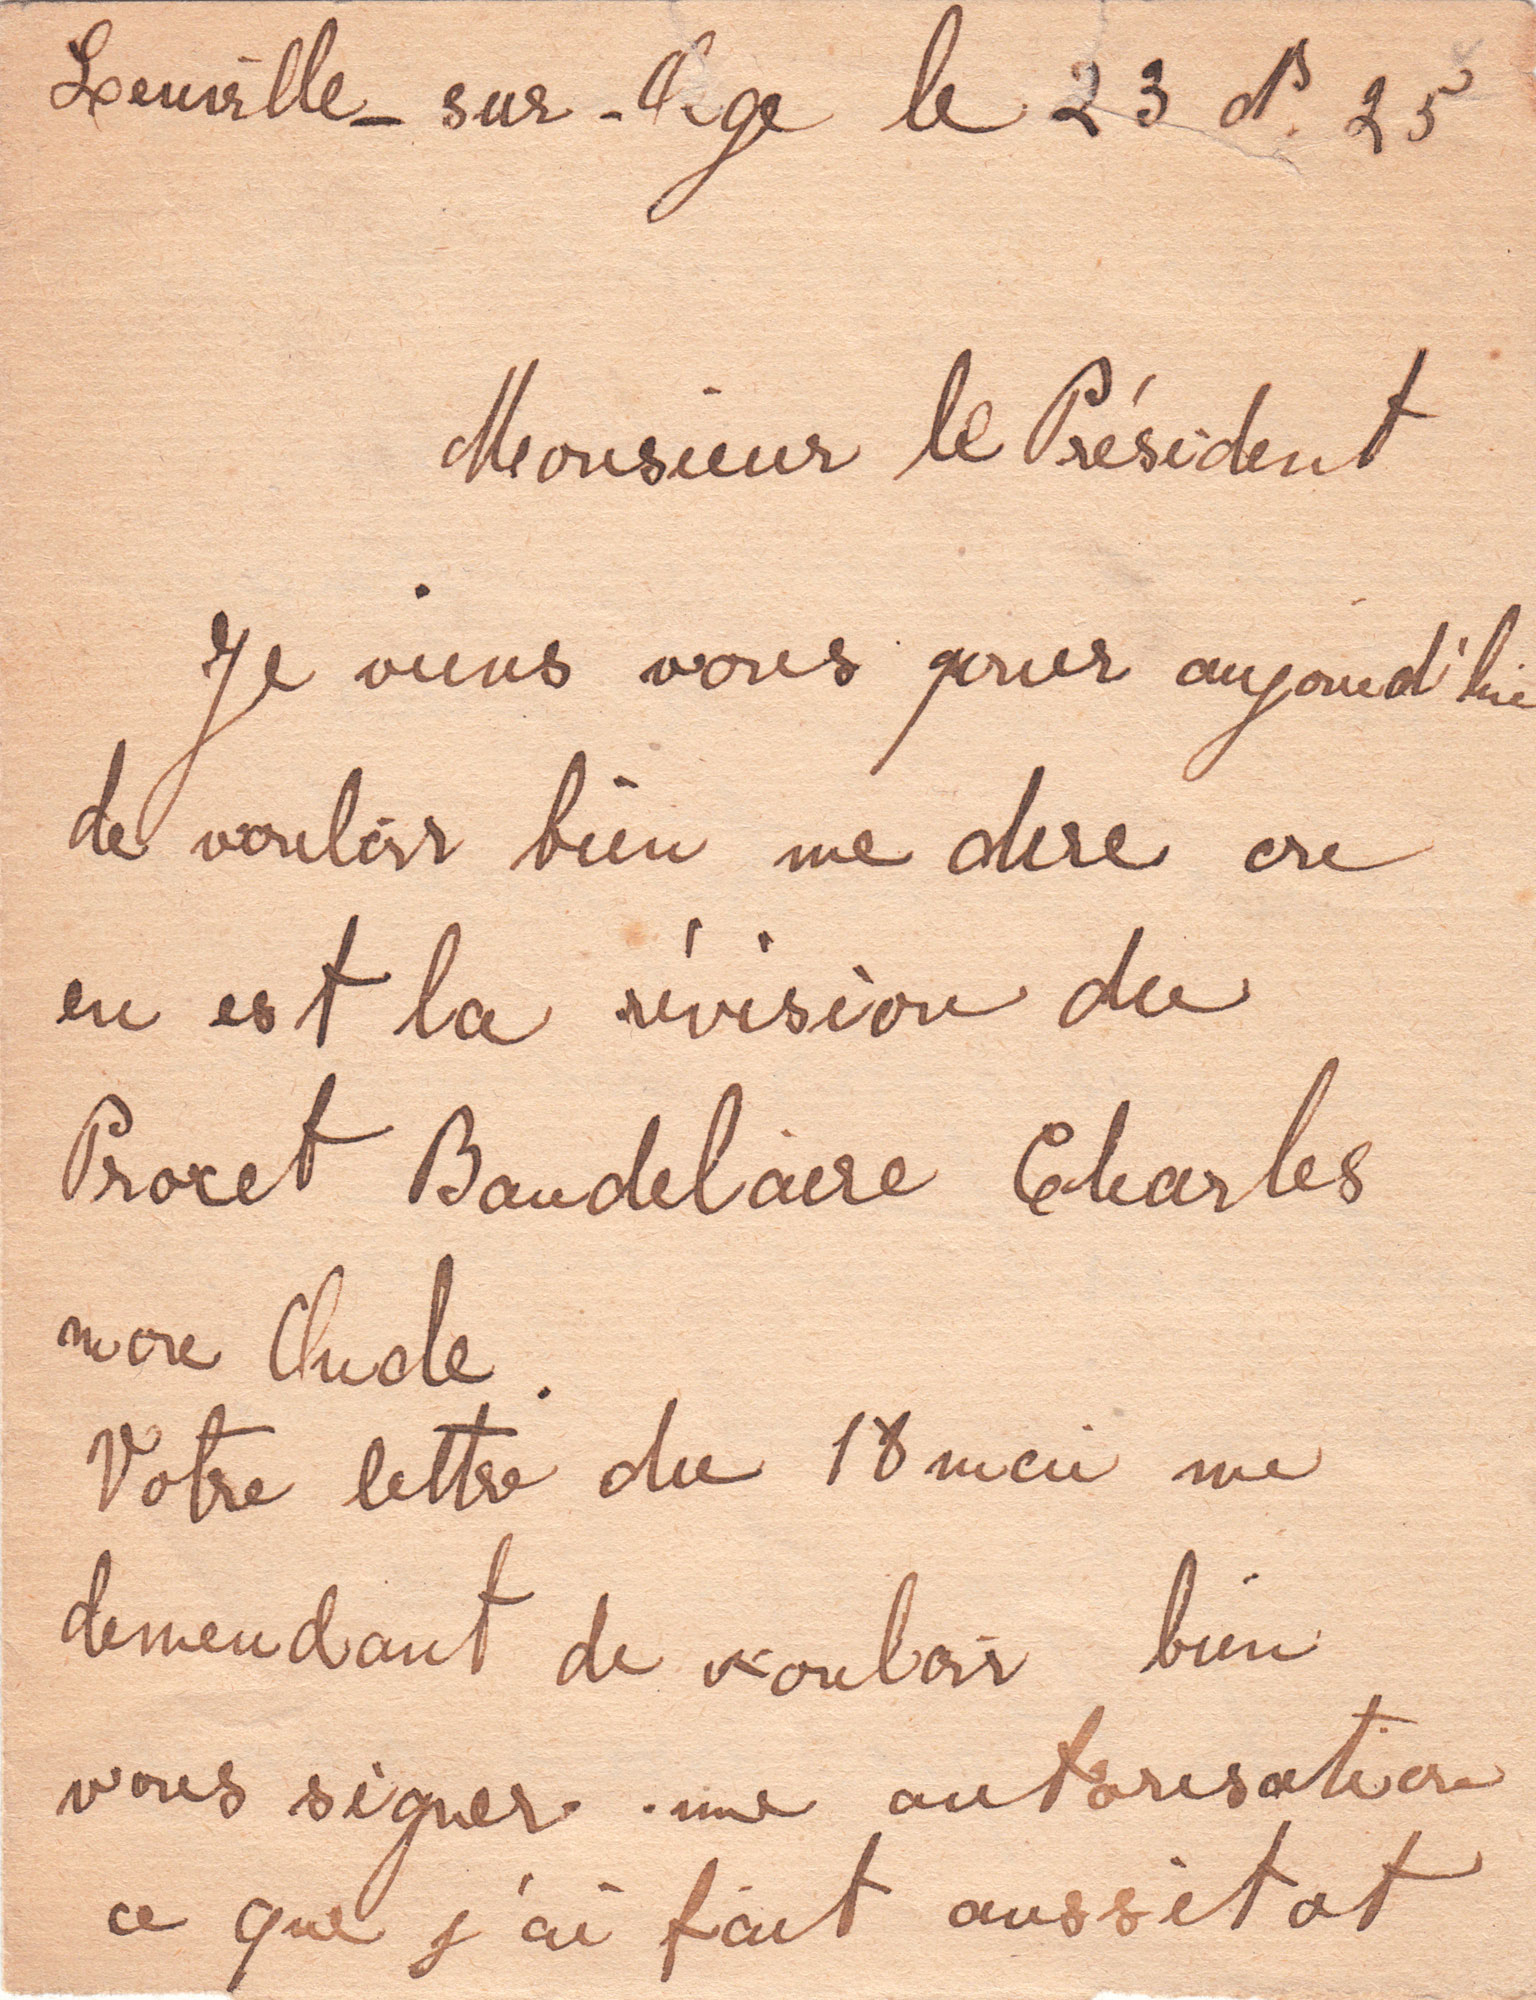 Leuville-sur-Orge le 23 dʳ. 25
Monsieur le Président
Je viens vous prier aujourd'hui
de vouloir bien me dire ou
en est la révision du
Procet Baudelaire Charles
mon Oncle.
Votre lettre du 18 mai me
demendant de vouloir bien
vous signer une autorisation
ce que j'ai fait aussitot